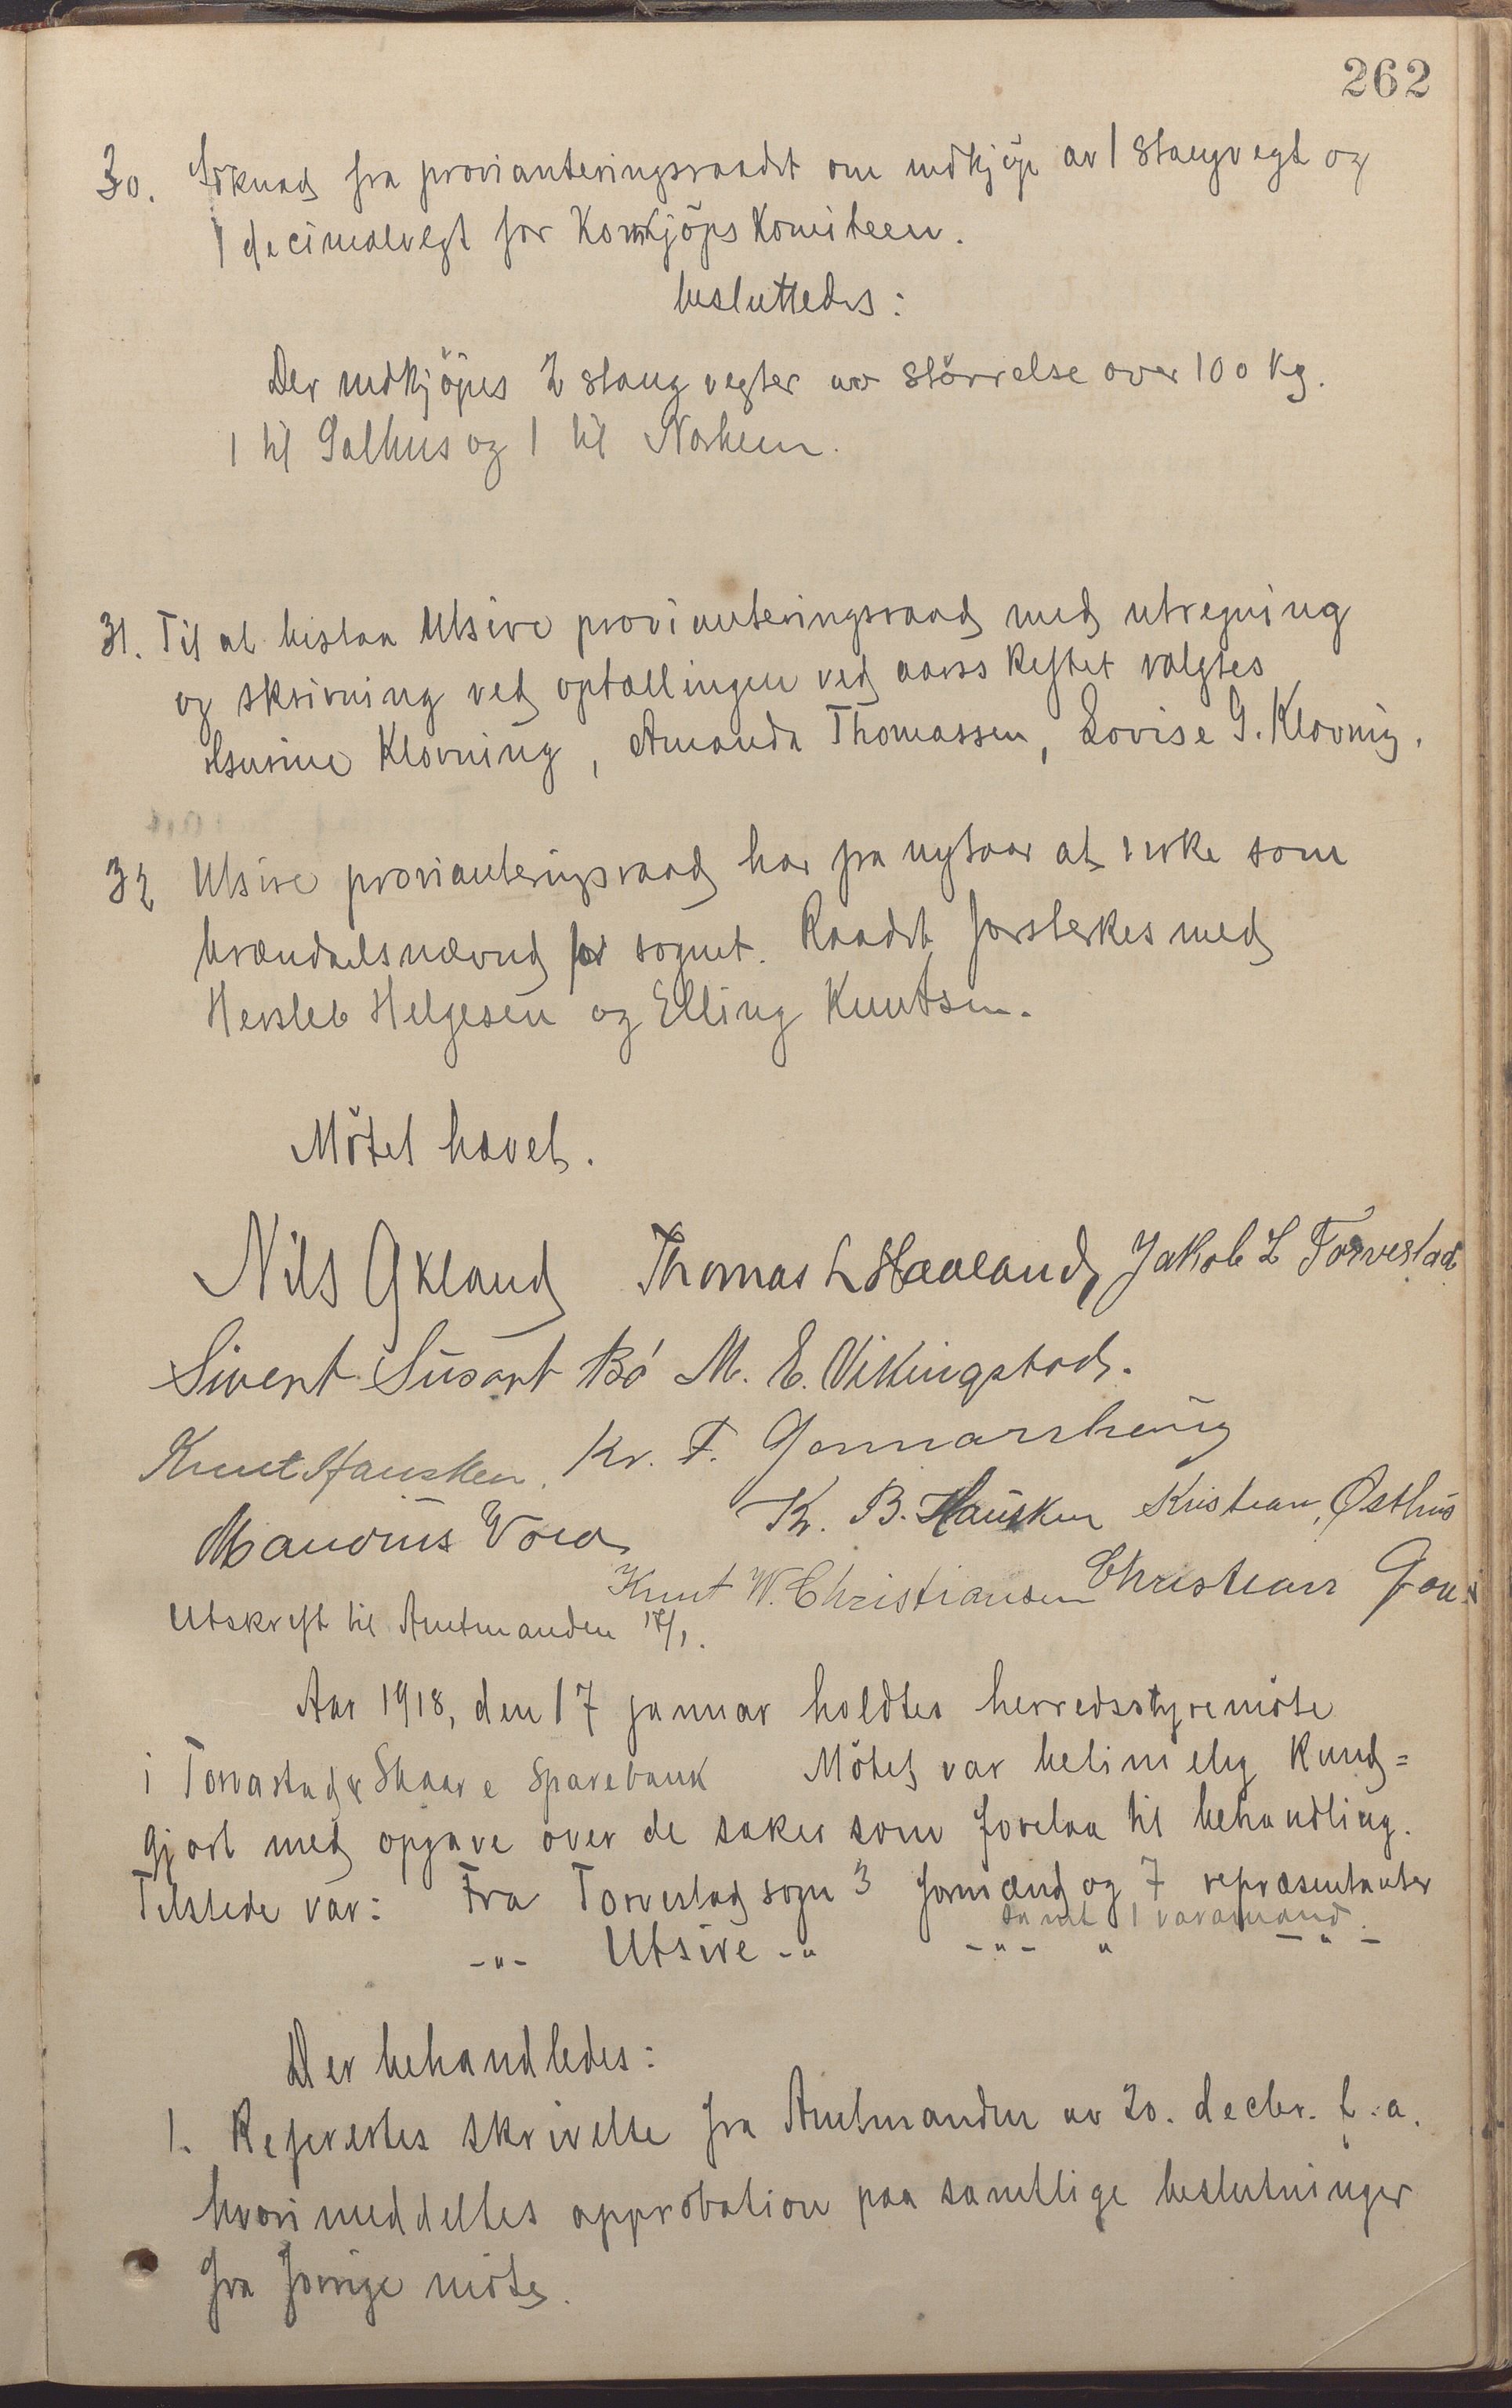 262
30. Söknad fra provianteringsraadet om indkjöp av 1 stangvegt og
1 decimalvegt for Kornkjöps Komiteen.
besluttedes:
Der indkjöpes 2 stangvegter av störrelse over 100 kg.
1 til Salhus og 1 til Norheim.
31. Til at bistaa Utsire provianteringsraad med utregning
og skrivning ved optællingen ved aarsskiftet valgtes
Gurine Klovning, Amanda Thomassen, Lovise G. Klovning.
32 Utsire provianteringsraad har fra nytaar at virke som
brændselsnævnd for sognet. Raadet forsterkes med
Hersleb Helgesen og Elling Knutsen.
Mötet hævet.
Nils Økland Thomas L Haaland, Jakob L Torvestad
Sivert Susort Bö M. E. Vikingstad.
Knut Hausken. Kr. F. Gunnarshaug
Maurius Vora K. B. Hausken Kristian Østhus
Knut W. Christiansen Christian
Utskrift til Amtmanden 17/1.
Aar 1918, den 17 januar holdtes herredsstyremöte
i Torvastad & Skaare Sparebank Mötet var betimelig kund=
gjort med opgave over de saker som forelaa til behandling.
Tilstede var: Fra Torvestad sogn 3 formænd og 7 repræsentanter
samt 1 varamand.
-"- Utsire -" -"- " -"-
Der behandledes:
1. Refertes skrivelse fra Amtmanden av 20. decbr. f. a.
hvori meddeltes approbation paa samtlige beslutninger
fra forrige möte.